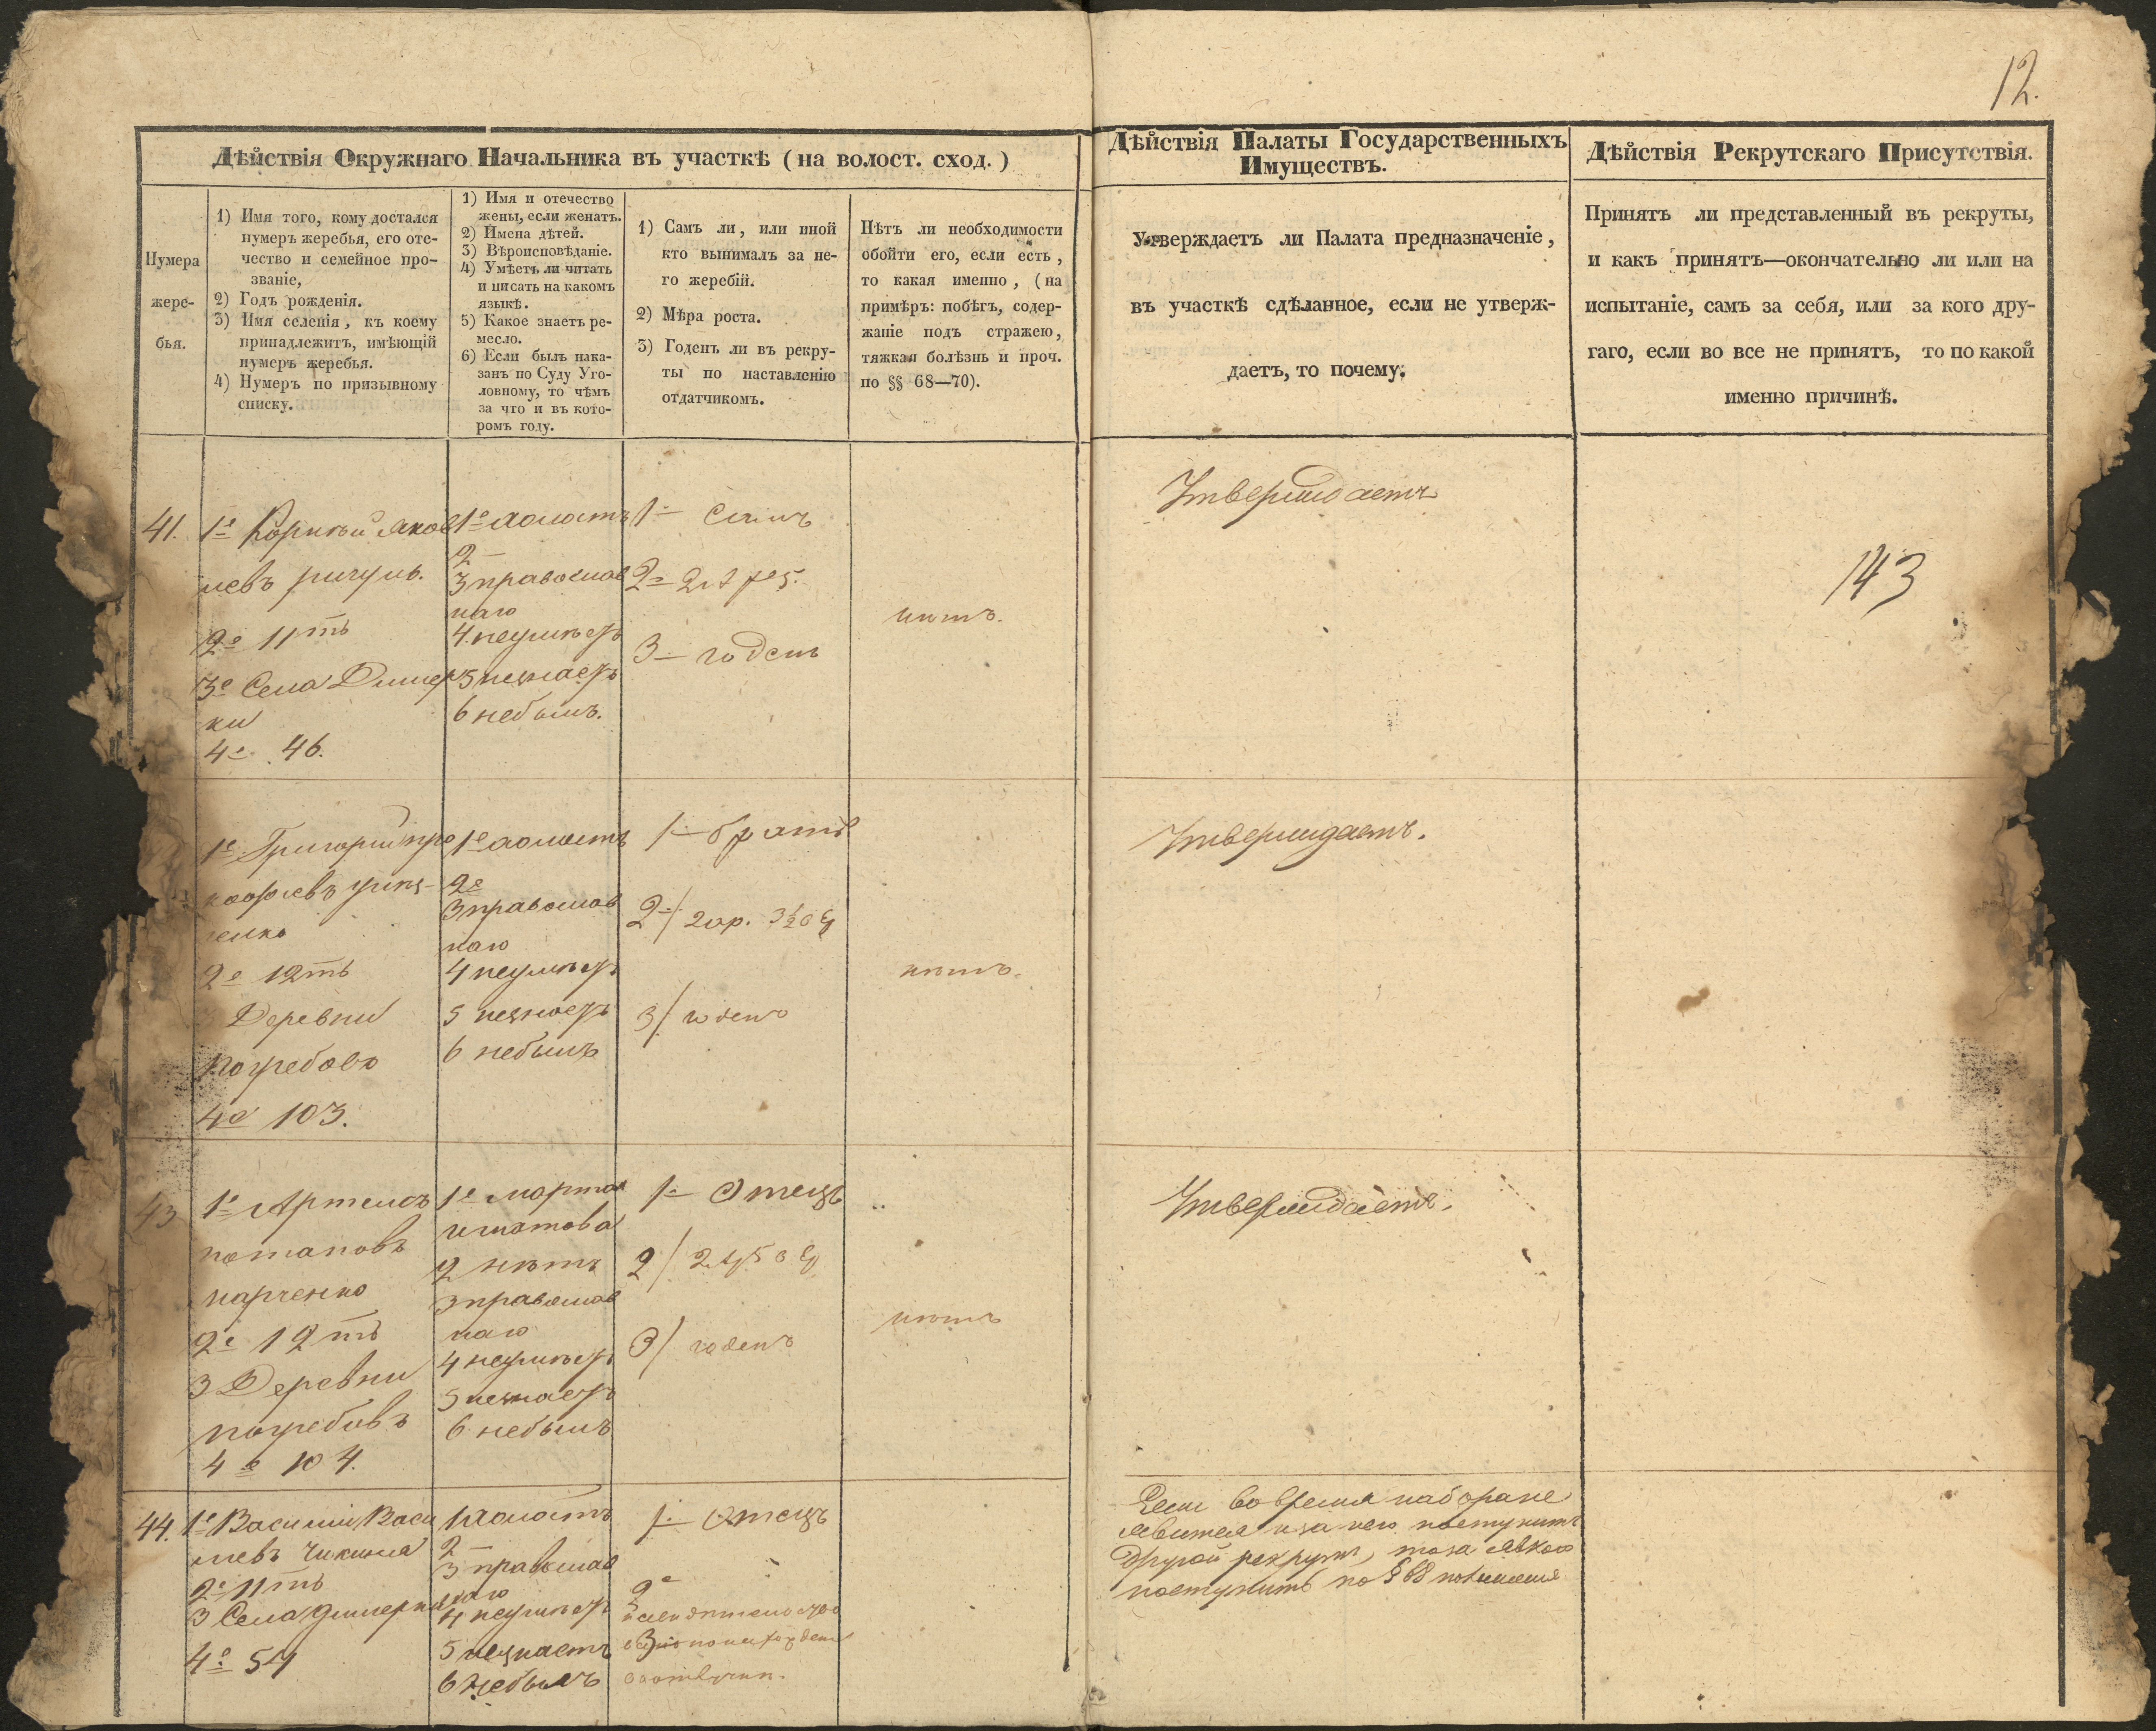 12.
Дѣйствія Окружнаго Начальника въ участкѣ (на волост. сход.)
Нумера
жере-
бья.
1) Имя того, кому достался
нумеръ жеребья, его оте-
чество и семейное про-
званіе,
2) Годъ рожденія.
3) Имя селенія, къ коему
принадлежитъ, имѣющій
нумеръ жеребья.
4) Нумеръ по призывному
списку.
1) Имя и отечество
жены, если женатъ.
2) Имена дѣтей.
3) Вѣроисповѣданіе.
4) Умѣетъ ли читать
и писать на какомъ
языкѣ.
5) Какое знаетъ ре-
месло.
6) Если былъ нака-
занъ по Суду Уго-
ловному, то чѣмъ
за что и въ кото-
ромъ году.
1) Самъ ли, или иной
кто вынималъ за не-
го жеребій.
2) Мѣра роста.
3) Годенъ ли въ рекру-
ты по наставленію
отдатчикомъ.
Нѣтъ ли необходимости
обойти его, если есть,
то какая именно, (на
примѣръ: побѣгъ, содер-
жаніе подъ стражею,
тяжкая болѣзнь и проч.
по §§ 68—70).
Дѣйствія Палаты Государственныхъ
Имуществъ.
Утверждаетъ ли Палата предназначеніе,
въ участкѣ сдѣланное, если не утверж-
даетъ, то почему.
Дѣйствія Рекрутскаго Присутствія.
Принятъ ли представленный въ рекруты,
и какъ принятъ—окончательно ли или на
испытаніе, самъ за себя, или за кого дру-
гаго, если во все не принятъ, то по какой
именно причинѣ.
41.
1е Корнѣй Яков
левъ
2е 11ть
3е Села Димер
ки
4е 46.
1е холостъ
2 —
3 православ
наго
4. неумѣетъ
5 незнаетъ
6 небылъ.
1— Самъ
2—
3— годенъ
нѣтъ.
Утверждаетъ
143
1е Григорій про
кофіевъ
2е 12ть
Деревни
погребовъ
4е 103.
1е холостъ
2е
3 православ
наго
4 неумѣетъ
5 незнаетъ
6 небылъ
1— братъ
2/ 2 ар. 3½ в
3/ годенъ
нѣтъ.
Утверждаетъ.
43
1е Артемъ
потаповъ
марченко
2е 12ть
3 Деревни
погребовъ
4е 104.
1е Марта
игнатова
2 нѣтъ
3 православ
наго
4 неумѣетъ
5 незнаетъ
6 небылъ
1— Отецъ
2/
3/ годенъ
нѣтъ
Утверждаетъ.
44.
1е Василій Васи
льевъ
2е 11ть
3 Села димерки
4е 57
1 холостъ
2 —
3 православ
наго
4 неумѣетъ
5 незнаетъ
6 небылъ
1— Отецъ
2е
Если во время набора не
явится и за него поступитъ
другой рекрутъ, то за явкою
поступить по § 68